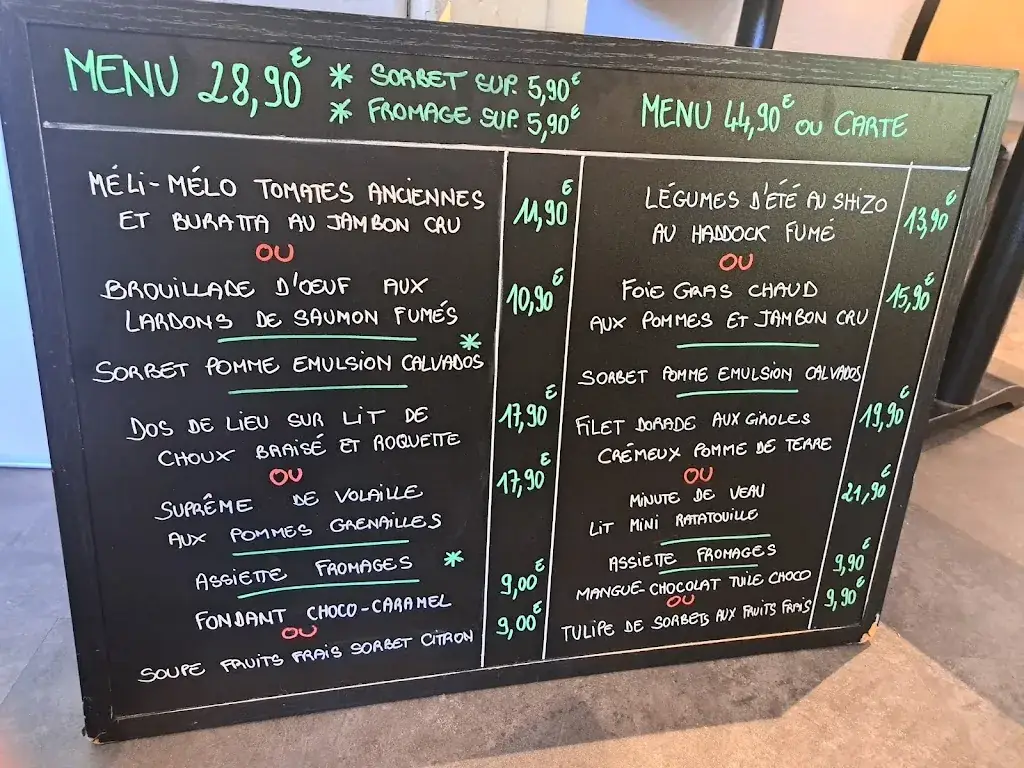 MENU 28,90€
* SORBET SUP. 5,90€
* FROMAGE SUP. 5,90€
MENU 44,90€ OU CARTE
MÉLI-MÉLO TOMATES ANCIENNES
ET BURATTA AU JAMBON CRU 11,90€
OU
BROUILLADE D'OEUF AUX 10,90€
LARDONS DE SAUMON FUMÉS
*
SORBET POMME EMULSION CALVADOS
DOS DE LIEU SUR LIT DE 17,90€
CHOUX BRAISÉ ET ROQUETTE
OU 17,90€
SUPRÊME DE VOLAILLE
AUX POMMES GRENAILLES
ASSIETTE FROMAGES *
FONDANT CHOCO-CARAMEL 9,00€
OU
SOUPE FRUITS FRAIS SORBET CITRON 9,00€
LÉGUMES D'ÉTÉ AU SHIZO 13,90€
AU HADDOCK FUMÉ
OU
FOIE GRAS CHAUD 15,90€
AUX POMMES ET JAMBON CRU
SORBET POMME EMULSION CALVADOS
FILET DORADE AUX GIROLES 19,90€
CRÉMEUX POMME DE TERRE
OU
MINUTE DE VEAU 21,90€
LIT MINI RATATOUILLE
ASSIETTE FROMAGES
MANGUE-CHOCOLAT TUILE CHOCO 9,90€
OU
TULIPE DE SORBETS AUX FRUITS FRAIS 9,90€